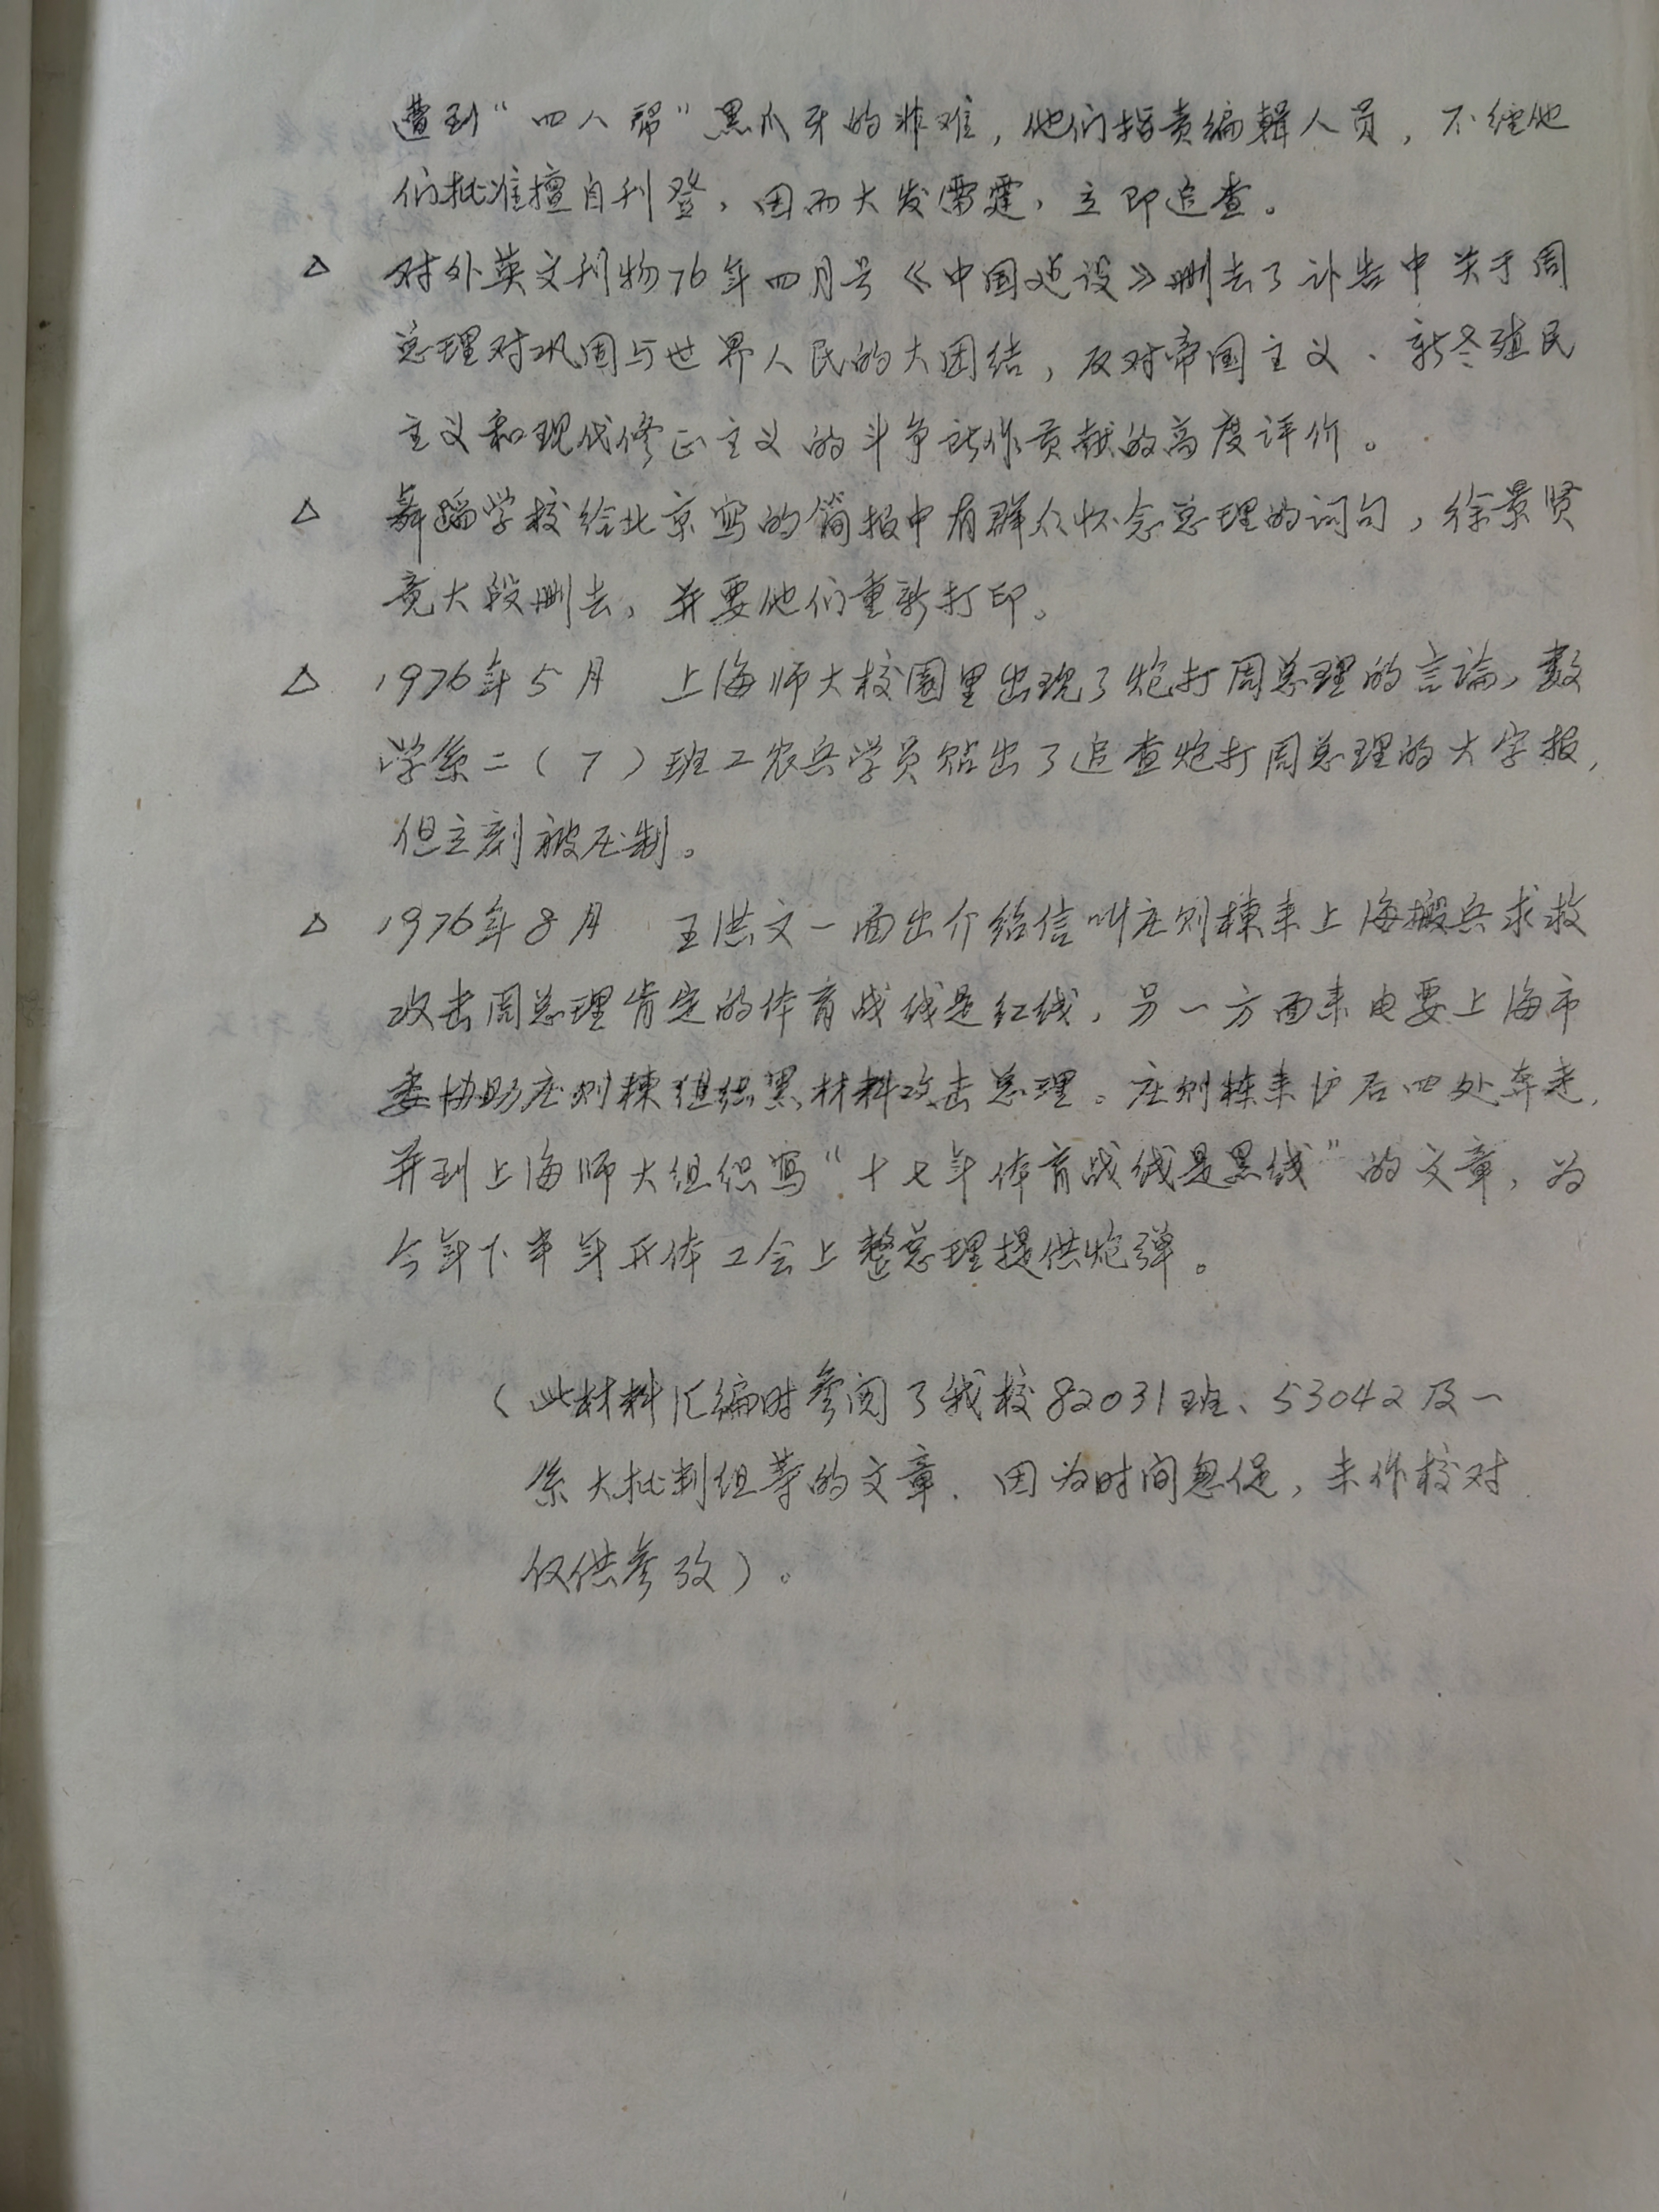 遭到“四人帮”黑爪牙的非难，他们指责编辑人员，不经他
们批准擅自刊登，因而大发雷霆，立即追查。
△ 对外英文刊物76年四月号《中国建设》删去了讣告中关于周
总理对巩固与世界人民的大团结，反对帝国主义、新老殖民
主义和现代修正主义的斗争所作贡献的高度评价。
△ 舞蹈学校给北京写的简报中有群众怀念总理的词句，徐景贤
竟大段删去，并要他们重新打印。
△ 1976年5月 上海师大校园里出现了炮打周总理的言论，数
学系二（7）班工农兵学员贴出了追查炮打周总理的大字报，
但立刻被压制。
△ 1976年8月 王洪文一面出介绍信叫庄则栋来上海搬兵求救
攻击周总理肯定的体育战线是红线，另一方面来电要上海市
委协助庄则栋组织黑材料攻击总理。庄则栋来沪后四处奔走，
并到上海师大组织写“十七年体育战线是黑线”的文章，为
今年下半年开体工会上整总理提供炮弹。
（此材料汇编时参阅了我校82031班、53042及一
系大批判组等的文章．因为时间忽促，未作校对
仅供参攷）。